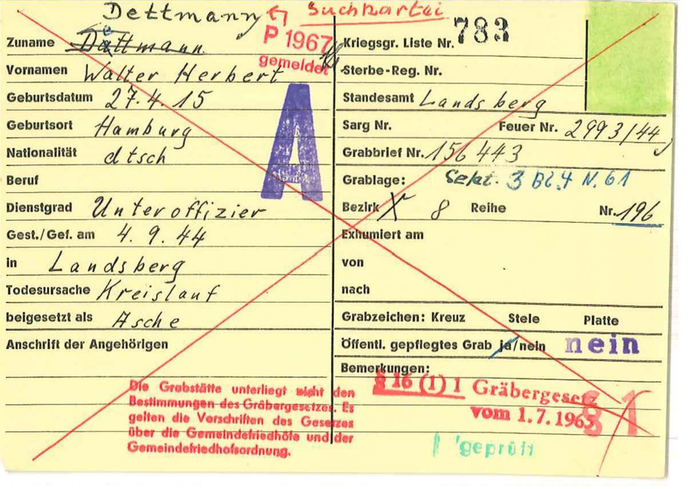 Dettmann Suchkartei
P 1967
gemeldet
783
Zuname Dettmann
Vornamen Walter Herbert
Geburtsdatum 27.4.15
Geburtsort Hamburg
Nationalität dtsch
Beruf
Dienstgrad Unteroffizier
Gest./Gef. am 4.9.44
in Landsberg
Todesursache Kreislauf
beigesetzt als Asche
Anschrift der Angehörigen
A
Die Grabstätte unterliegt nicht den
Bestimmungen des Gräbergesetzes. Es
gelten die Vorschriften des Gesetzes
über die Gemeindefriedhöfe und der
Gemeindefriedhofsordnung.
Kriegsgr. Liste Nr.
Sterbe-Reg. Nr.
Standesamt Landsberg
Sarg Nr. Feuer Nr. 2993/44
Grabbrief Nr. 156 443
Grablage: 3 Bl. 4 N. 61
Bezirk X 8 Reihe Nr. 196
Exhumiert am
von
nach
Grabzeichen: Kreuz Stele Platte
Öffentl. gepflegtes Grab ja/nein nein
Bemerkungen:
§ 16 (1) 1 Gräbergesetz
vom 1.7.1965
§ 1
geprüft